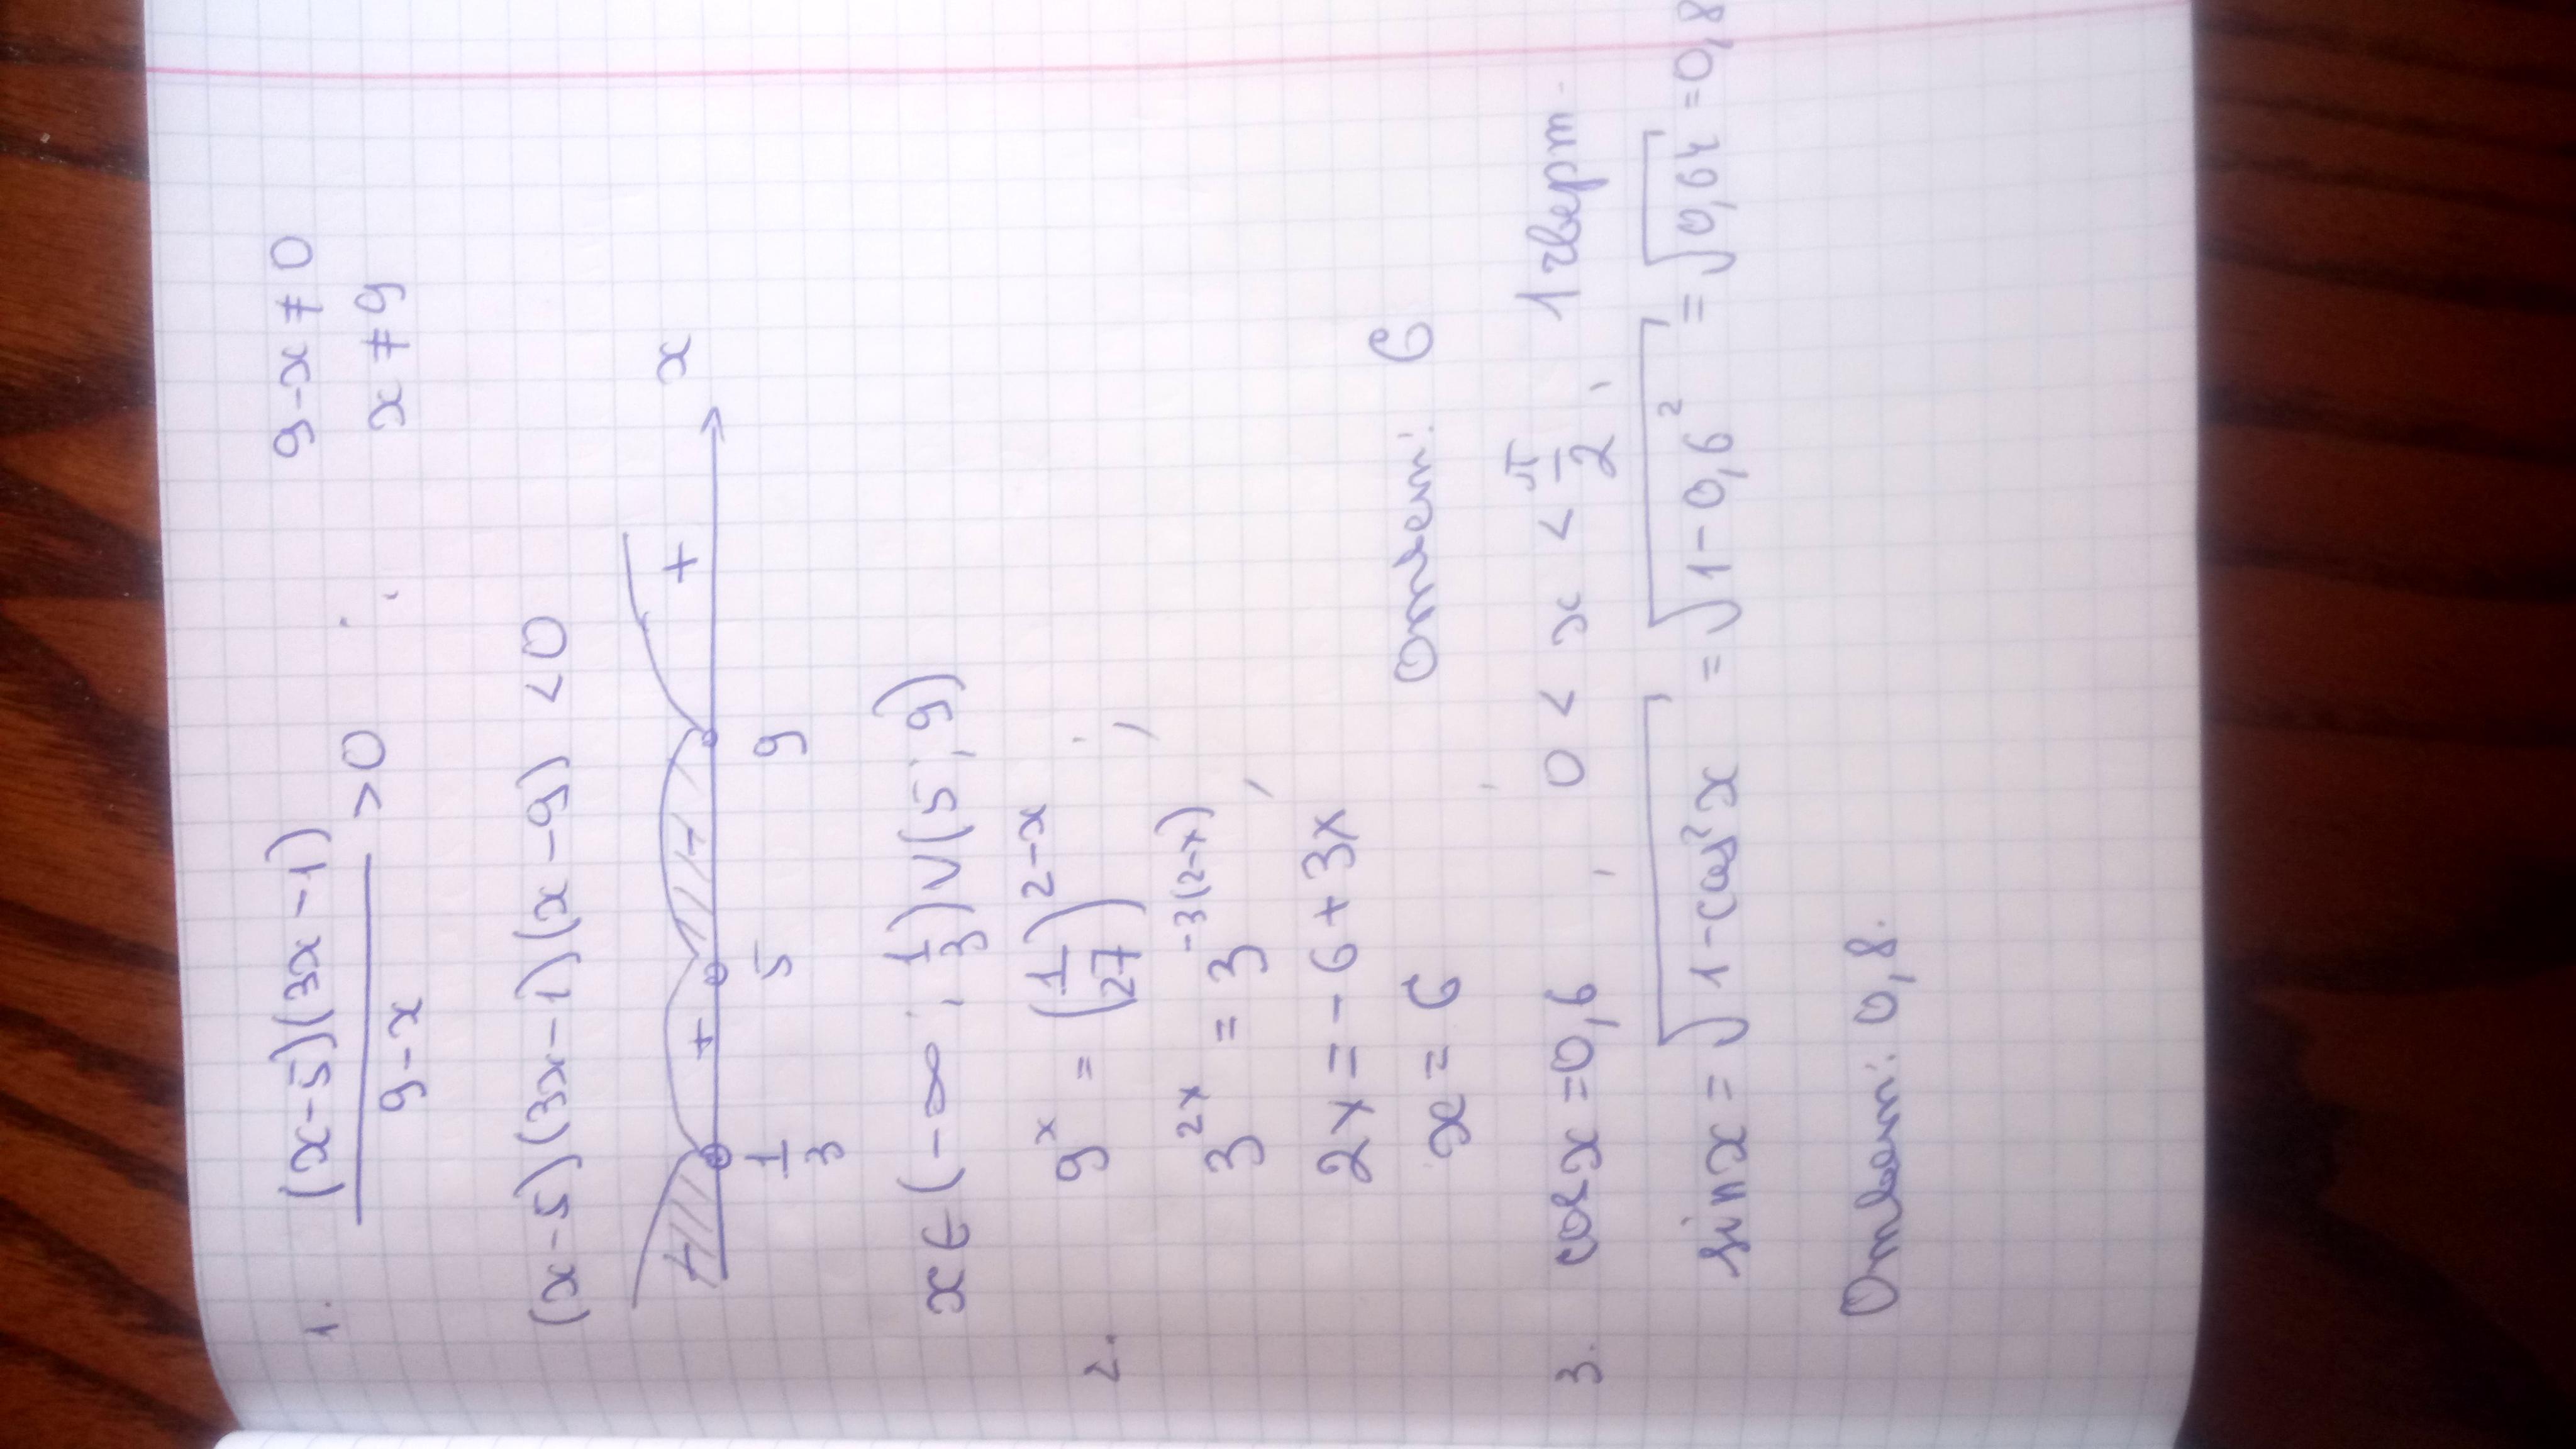 1. (x-5)(3x-1)/(9-x) >0   9-x≠0
x≠9
(x-5)(3x-1)(x-9) <0
- + - + x
1/3 5 9
x∈(-∞; 1/3)∪(5; 9)
2. 9^x = (1/27)^(2-x)
3^(2x) = 3^(-3(2-x))
2x = -6+3x
x = 6   Ответ: 6
3. cosx=0,6, 0 < x < π/2, 1 четверт.
sinx = √(1-cos²x) = √(1-0,6²) = √0,64 =0,8
Ответ: 0,8.